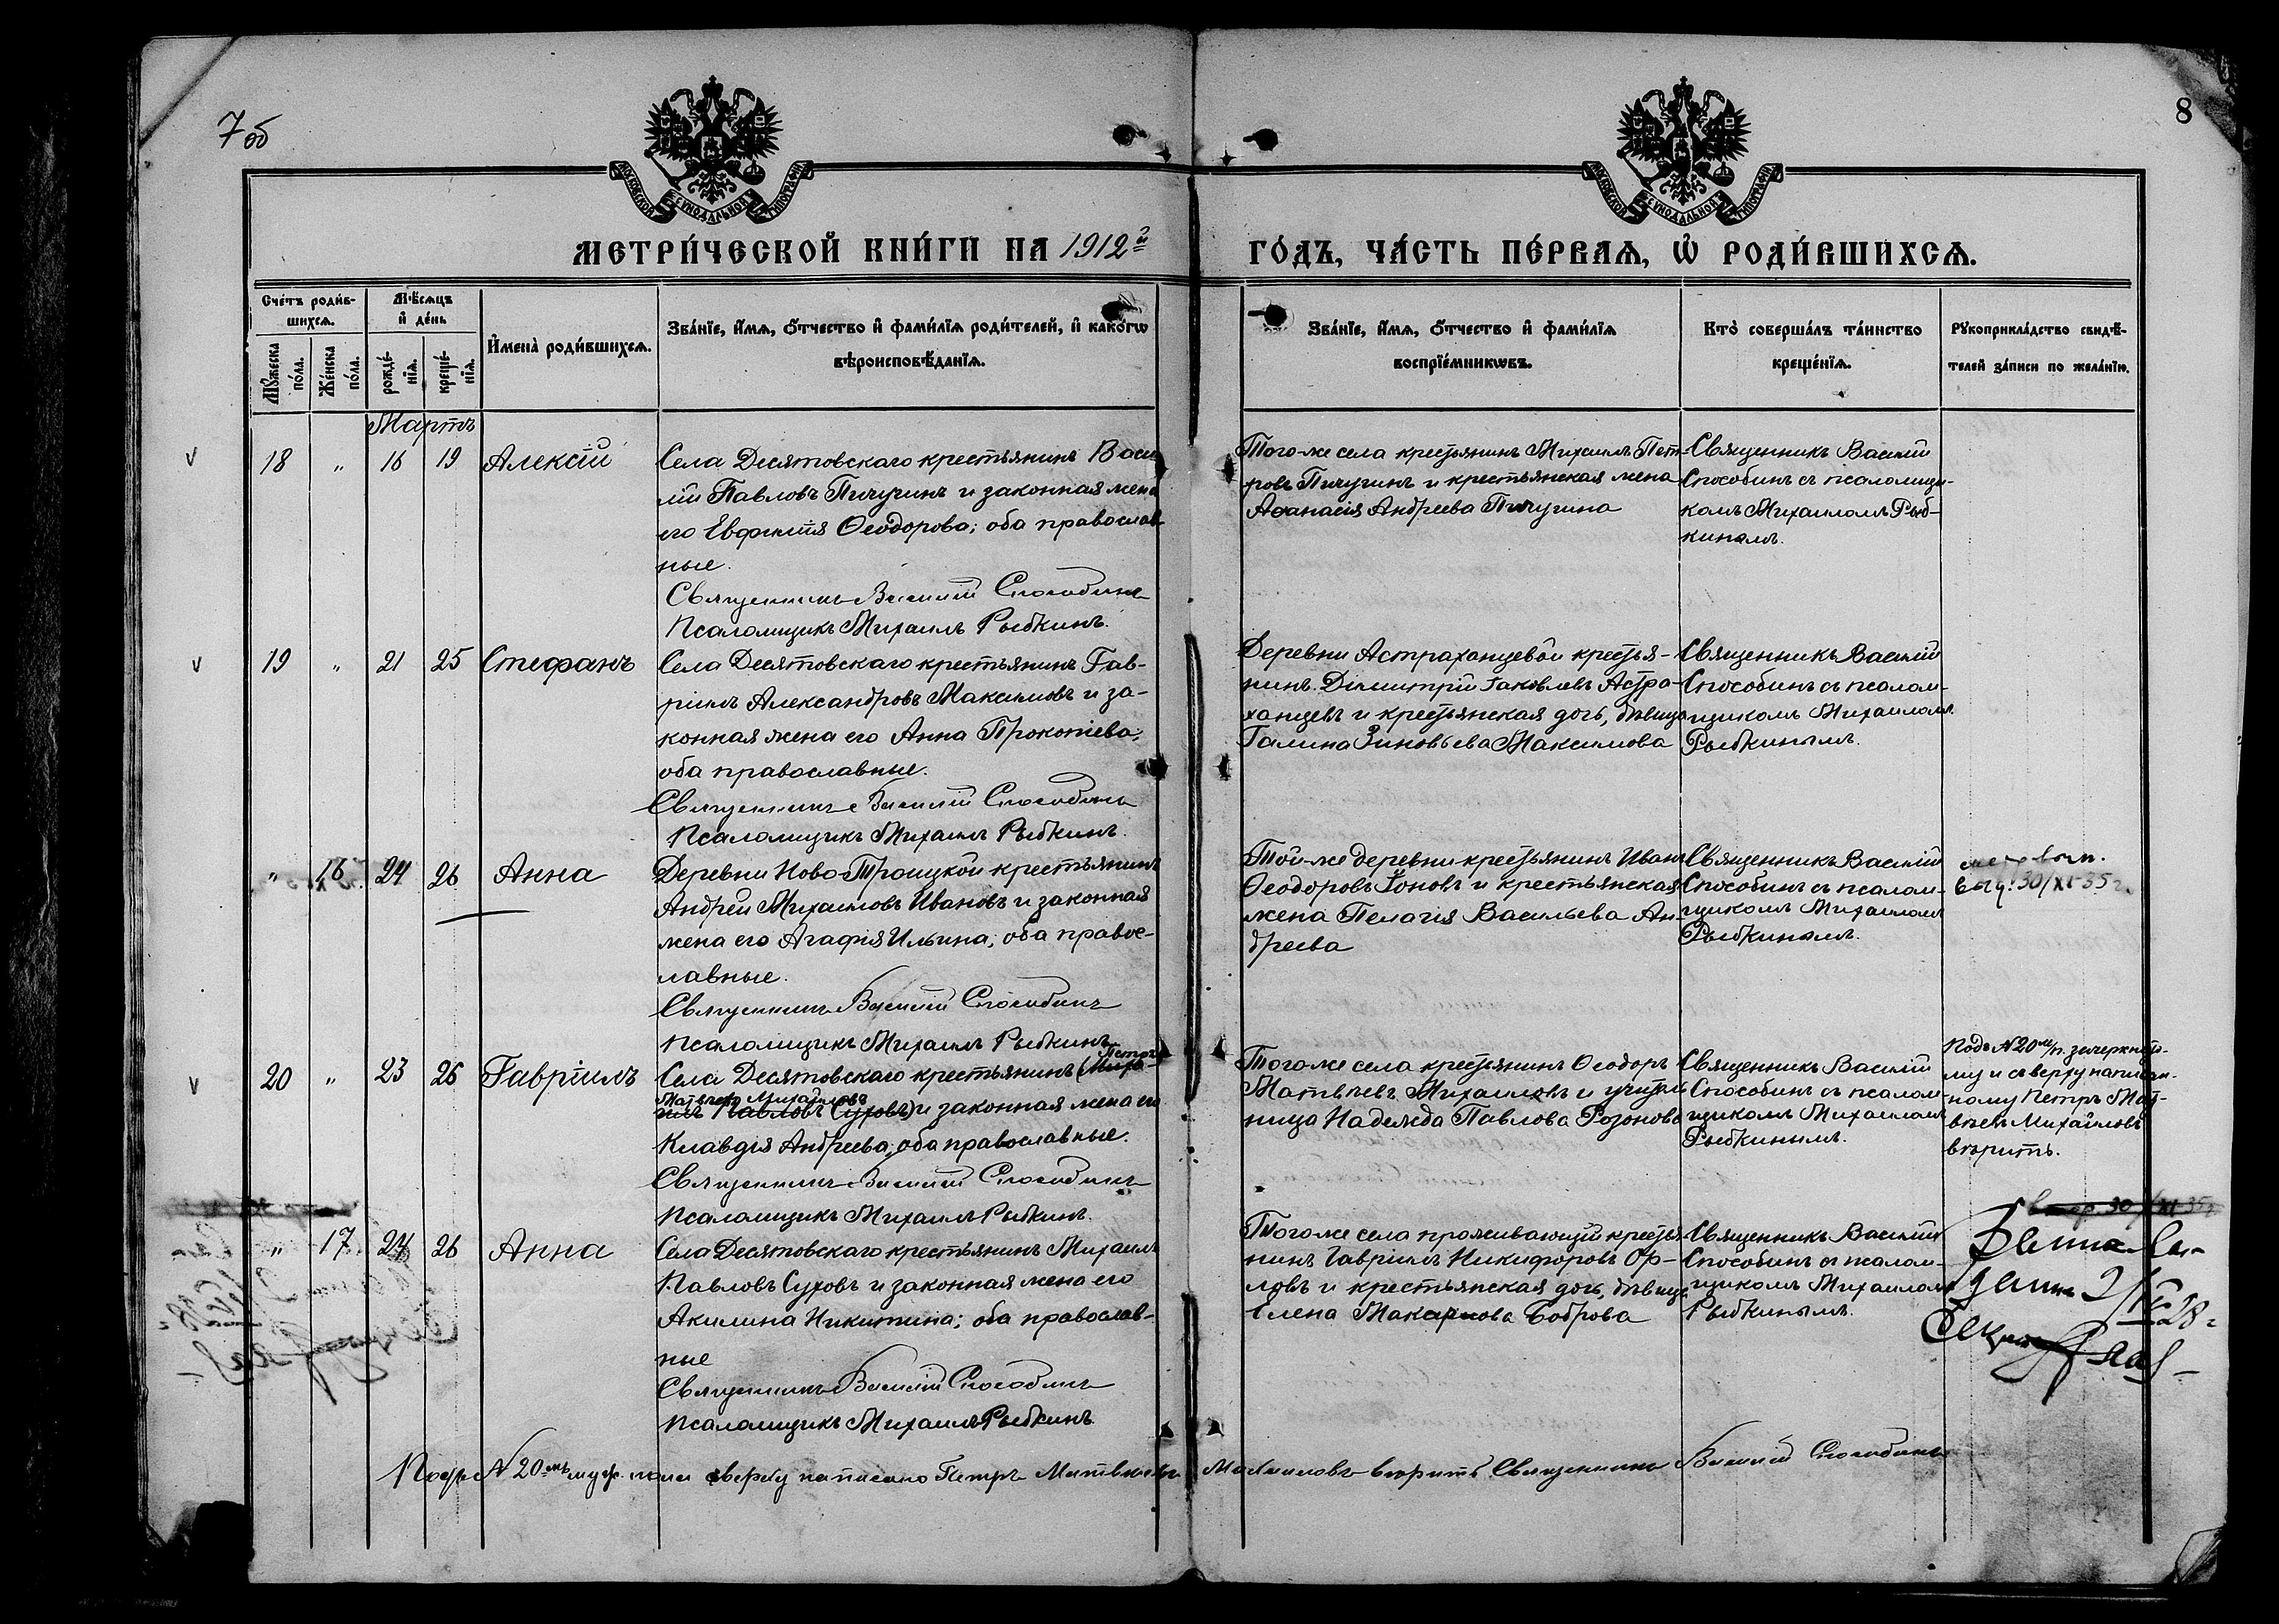 7 об
8
МОСКОВСКОЙ СѴНОДАЛЬНОЙ ТИПОГРАФІИ
МОСКОВСКОЙ СѴНОДАЛЬНОЙ ТИПОГРАФІИ
МЕТРИ́ЧЕСКОЙ КНИ́ГИ НА 1912й ГО́ДЪ, ЧА́СТЬ ПЕ́РВАЯ, Ѡ РОДИ́ВШИХСЯ.
Счетъ роди́в-
шихся.
Мꙋжеска по́ла.
Же́нска по́ла.
Мѣ́сяцъ
и де́нь
рожде́-
нїя.
креще́-
нїя.
Имена̀ роди́вшихся.
Зва́нїе, и́мя, ѻ́тчество и фами́лїя роди́телей, и како́гѡ
вѣроисповѣ́данїя.
Зва́нїе, и́мя, ѻ́тчество и фами́лїя
воспрїе́мникѡвъ.
Кто̀ соверша́лъ та́инство
креще́нїя.
Рꙋкоприкла́дство свидѣ́-
телей за́писи по жела́нїю.
Мартъ
18 " 16 19 Алексій
Села Десятовскаго крестьянинъ Васи
лій Павловъ Пичугинъ и законная жена
его Евфимія Ѳеодорова; оба православ-
ные.
Священникъ Василій Способинъ
Псаломщикъ Михаилъ Рыбкинъ.
Того-же села крестьянинъ Михаилъ Пет-
ровъ Пичугинъ и крестьянская жена
Аѳанасія Андреева Пичугина
Священникъ Василій
Способинъ съ псаломщи-
комъ Михаиломъ Рыб-
кинымъ.
19 " 21 25 Стефанъ
Села Десятовскаго крестьянинъ Гав-
ріилъ Александровъ Максимовъ и за-
конная жена его Анна Прокопіева;
оба православные.
Священникъ Василій Способинъ
Псаломщикъ Михаилъ Рыбкинъ.
Деревни Астраханцевой крестья-
нинъ Димитрій Іаковлевъ Астра-
ханцевъ и крестьянская дочь, дѣвица
Галина Зиновьева Максимова
Священникъ Василій
Способинъ съ псалом-
щикомъ Михаиломъ
Рыбкинымъ.
" 16 24 26 Анна
Деревни Ново-Троицкой крестьянинъ
Андрей Михаиловъ Ивановъ и законная
жена его Агафія Ильина; оба право-
славные.
Священникъ Василій Способинъ
Псаломщикъ Михаилъ Рыбкинъ
Той-же деревни крестьянинъ Иванъ
Ѳеодоровъ Іоновъ и крестьянская
жена Пелагія Васильева Ан-
дреева
Священникъ Василій
Способинъ съ псалом-
щикомъ Михаиломъ
Рыбкинымъ.
выд. 30/XI-35 г.
20 " 23 26 Гавріилъ
Петръ
Села Десятовскаго крестьянинъ (Миха-
Матвѣевъ Михаиловъ
илъ Павловъ Суховъ) и законная жена его
Клавдія Андреева; оба православные.
Священникъ Василій Способинъ
Псаломщикъ Михаилъ Рыбкинъ.
Того-же села крестьянинъ Ѳеодоръ
Матвѣевъ Михаиловъ и учитель-
ница Надежда Павлова Розонова
Священникъ Василій
Способинъ съ псалом-
щикомъ Михаиломъ
Рыбкинымъ.
Подъ № 20 м/п. зачеркнуто-
му и сверху написан-
ному Петръ Мат-
вѣевъ Михайловъ
вѣрить.
" 17 24 26 Анна
Села Десятовскаго крестьянинъ Михаилъ
Павловъ Суховъ и законная жена его
Акилина Никитина; оба православ-
ные
Священникъ Василій Способинъ
Псаломщикъ Михаилъ Рыбкинъ.
Того-же села проживающій крестья
нинъ Гавріилъ Никифоровъ Ор-
ловъ и крестьянская дочь, дѣвица
Елена Макарова Боброва
Священникъ Василій
Способинъ съ псалом-
щикомъ Михаиломъ
Рыбкинымъ.
30/XI 35 г.
28 г
Подъ № 20мъ муж. пола сверху написано Петръ Матвѣевъ Михаиловъ вѣрить Священникъ Василій Способинъ